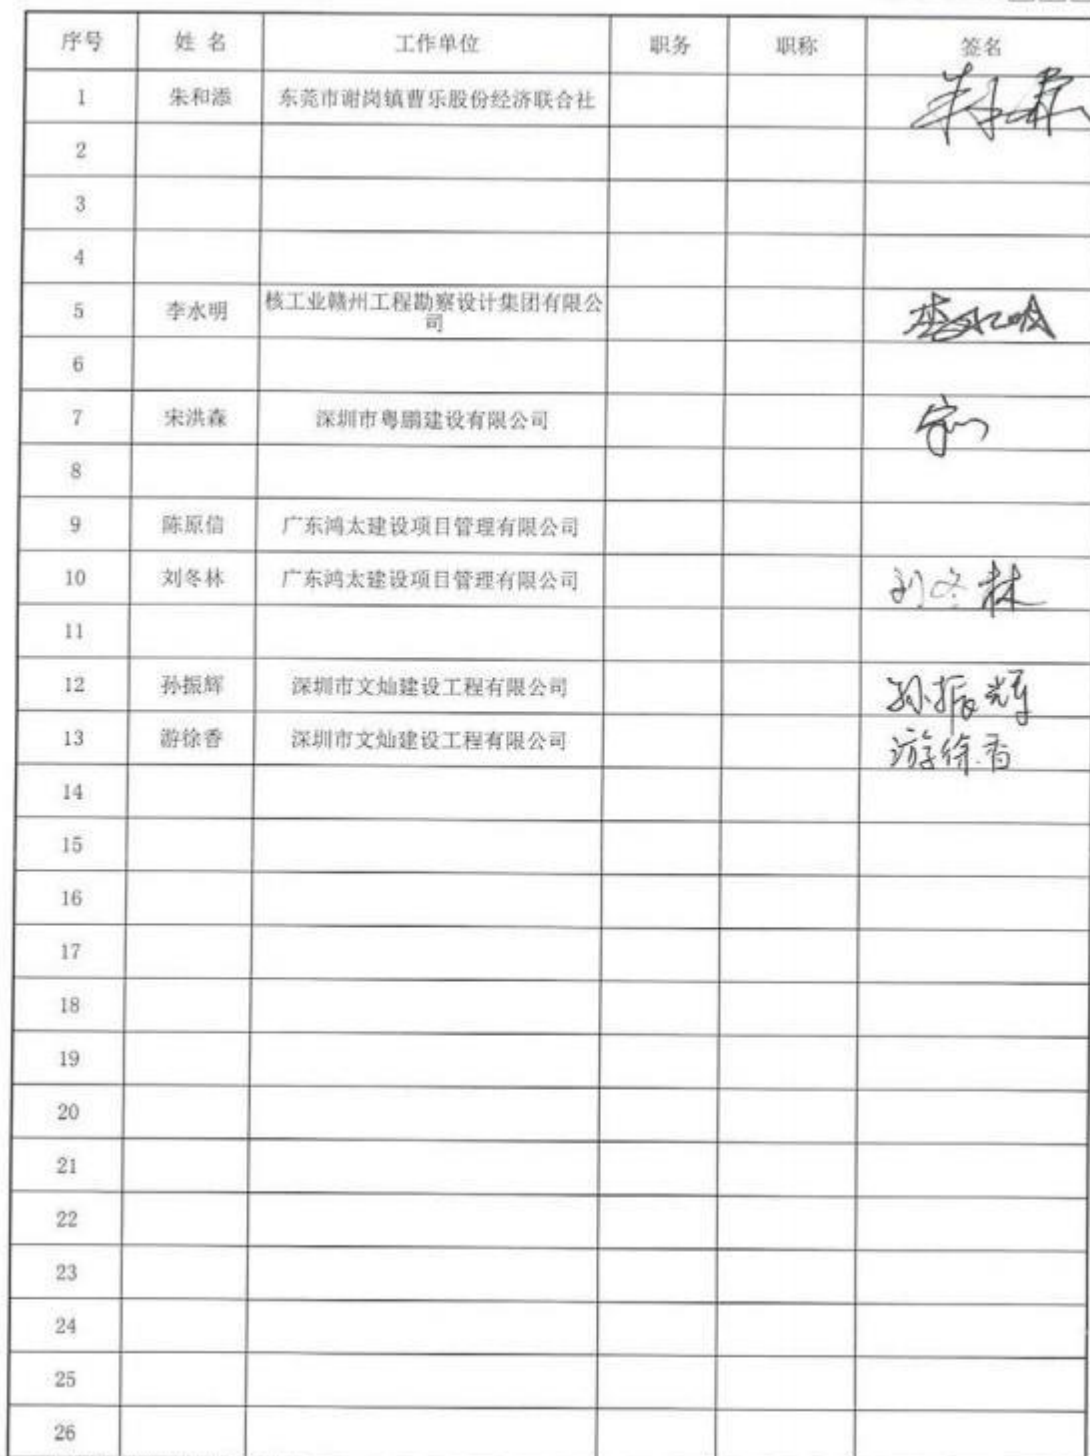 序号 姓 名 工作单位 职务 职称 签名
1 朱和添 东莞市谢岗镇曹乐股份经济联合社
2
3
4
5 李水明 核工业赣州工程勘察设计集团有限公
司 李水明
6
7 宋洪森 深圳市粤鹏建设有限公司
8
9 陈原信 广东鸿太建设项目管理有限公司
10 刘冬林 广东鸿太建设项目管理有限公司 刘冬林
11
12 孙振辉 深圳市文灿建设工程有限公司 孙振辉
13 游徐香 深圳市文灿建设工程有限公司 游徐香
14
15
16
17
18
19
20
21
22
23
24
25
26